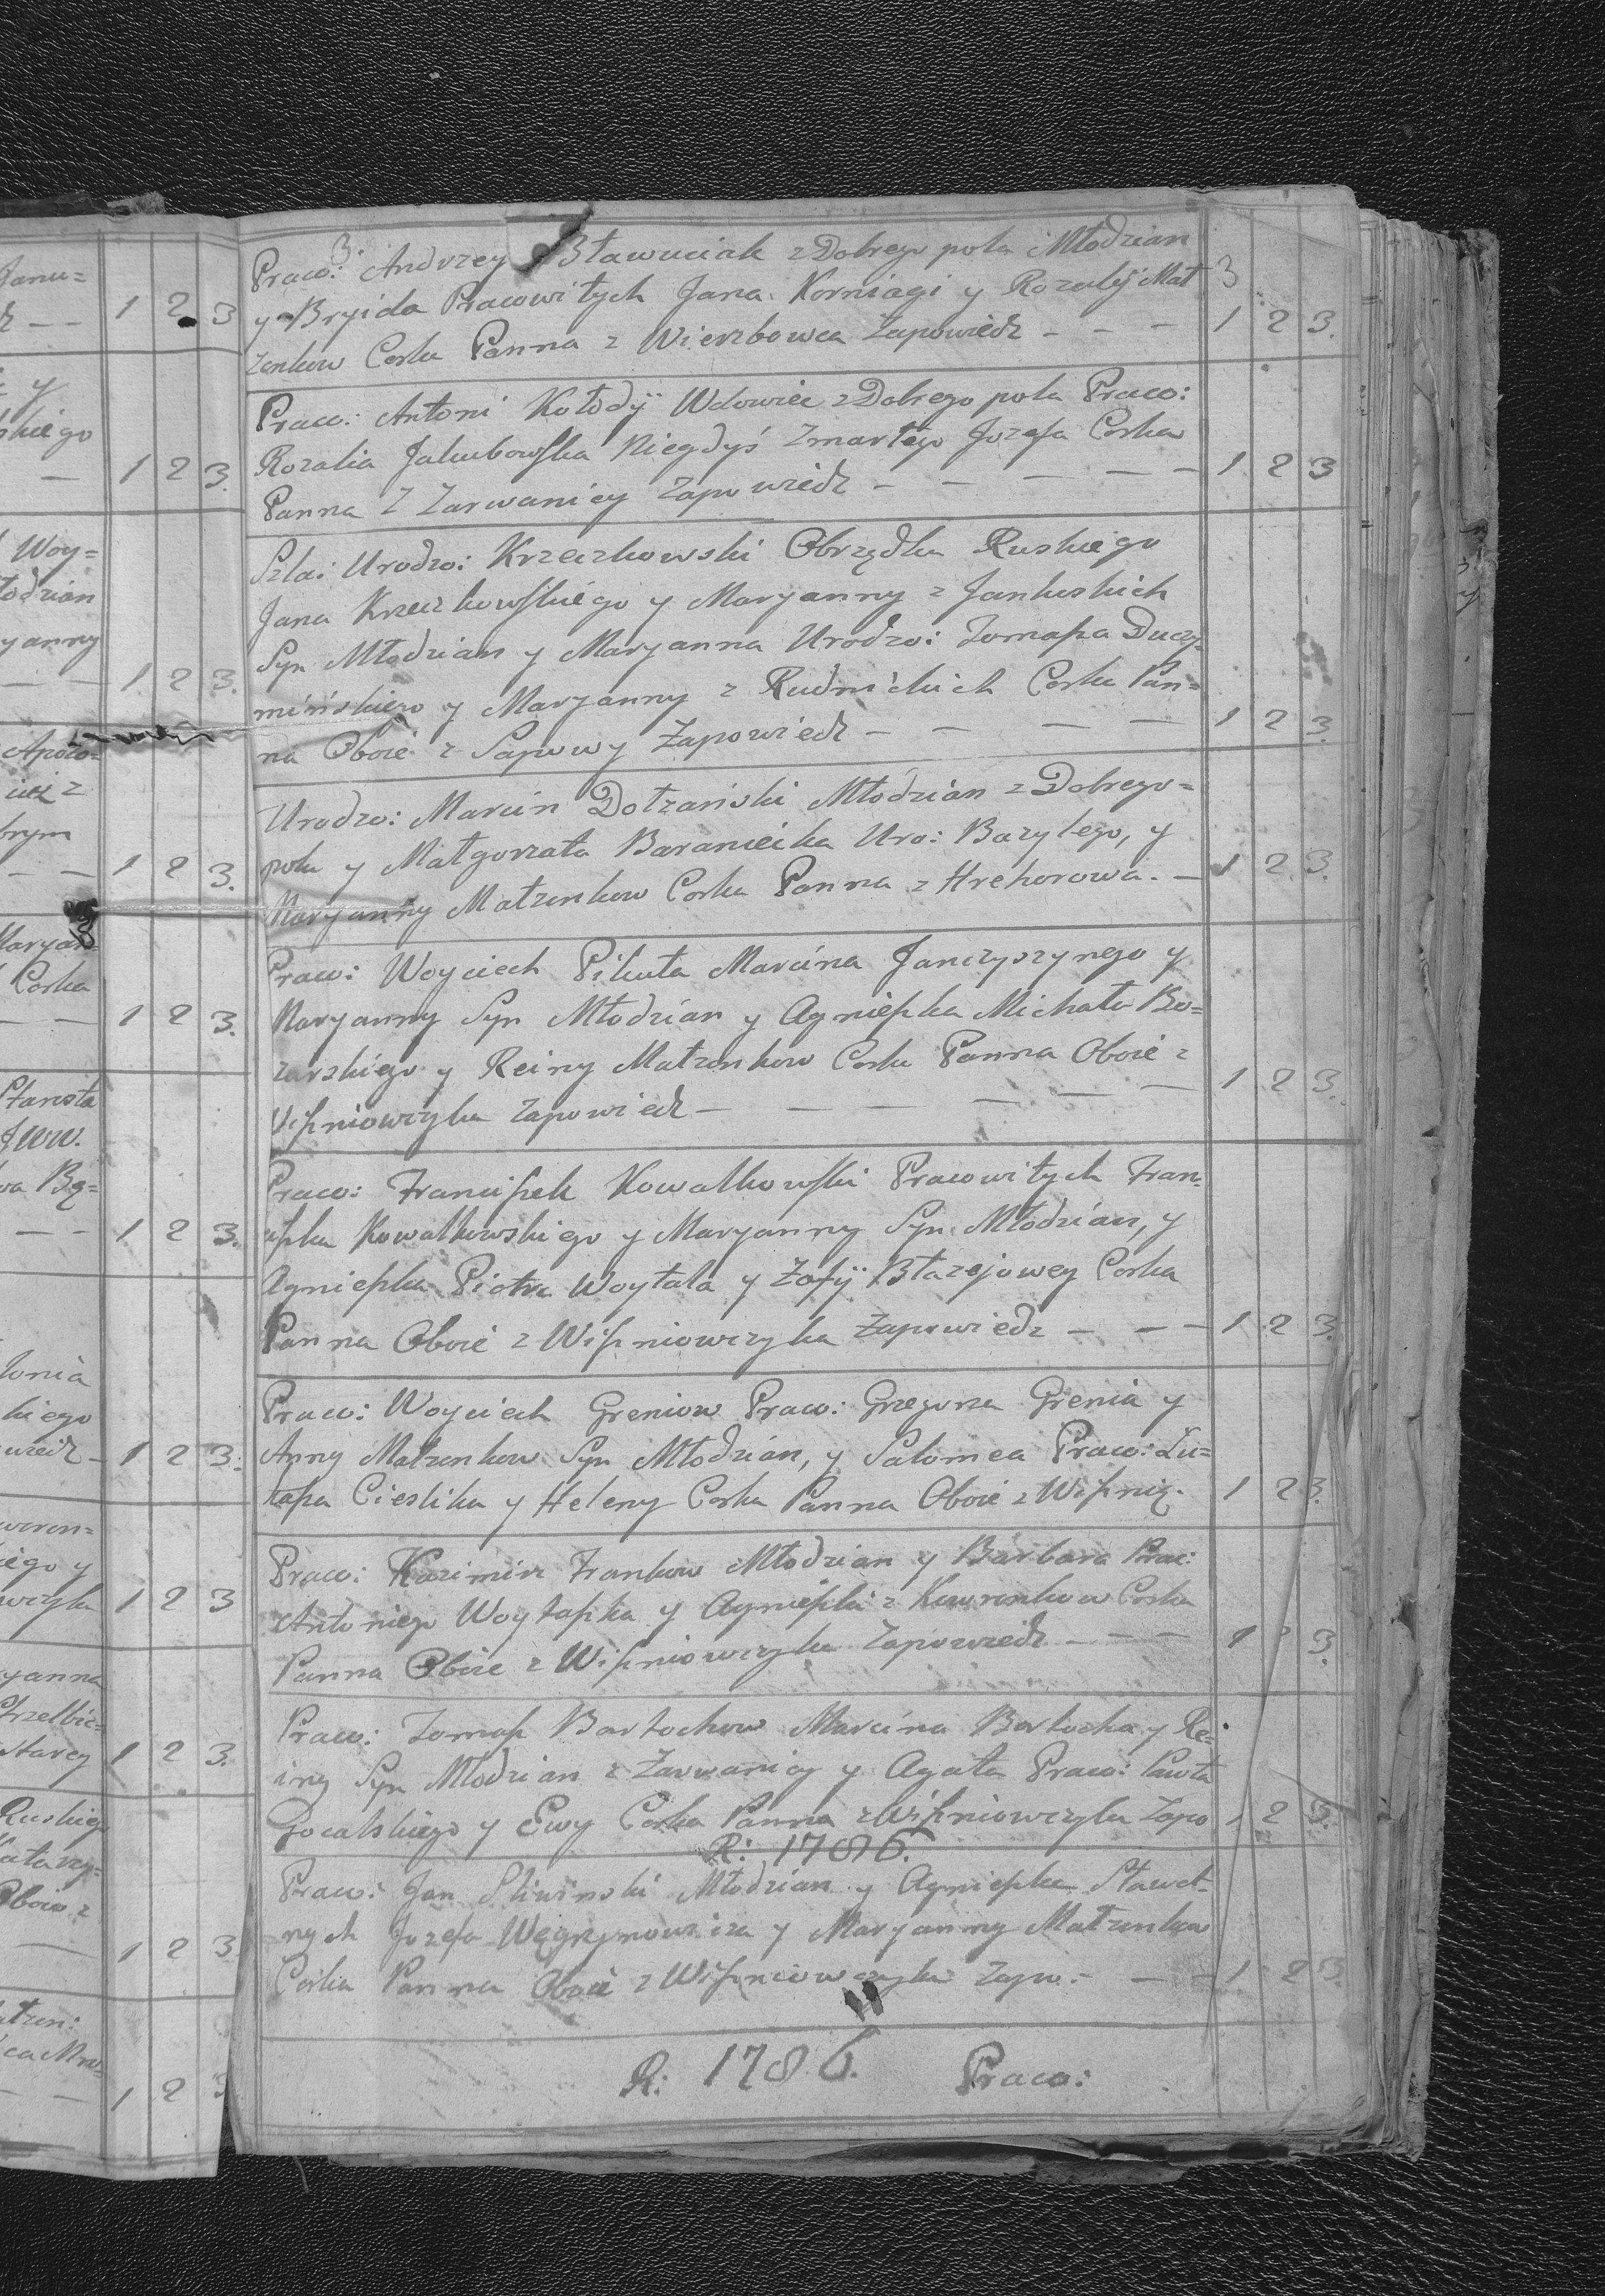 Janu=
1 2 3
y
skiego
1 2 3.
Woy=
todzian
yanny
1 2 3.
Apoło=
brym
1 2 3.
Maryan=
Corka
1 2 3.
JWW.
1 2 3.
tonia
kiego
1 2 3.
iego y
1 2 3
yanna
Strzelbic=
1 2 3.
Ruskieg
Katarzy=
Oboie z
1 2 3
1 2 3
3
Praco: Andrzey Bławuciak z Dobrego pola Młodzian 3
y Bryida Pracowitych Jana Korniagi y Rozalij Mał
żenkow Corka Panna z Wierzbowca Zapowiedz - - - 1 2 3.
Praco: Antoni Kołodÿ Wdowiec z Dobrego pola Praco:
Rozalia Jakubowska Niegdyś Zmarłego Jozefa Corka
Panna Z Zarwanicy Zapowiedz - - - - - 1 2 3
Szla: Urodzo: Krzeczkowski Obrządku Ruskiego
Jana Krzeczkowskiego y Maryanny z Jankuskich
Syn Młodzian y Maryanna Urodzo: Tomasza Duczy-
mińskiego y Maryanny z Rudnickich Corka Pan=
na Oboie z Sapowy Zapowiedz - - - - 1 2 3.
Urodzo: Marcin Dołzański Młodzian z Dobrego=
pola y Małgorzata Baraniecka Uro: Bazylego, y
Maryanny Małzenkow Corka Panna z Hrehorowa. - 1 2 3.
Praco: Woyciech Pikuta Marcina Janczyszynego y
Maryanny Syn Młodzian y Agnieszka Michała Bo=
zarskiego y Reiny Małzenkow Corka Panna Oboie z
Wiszniowczyka Zapowiedz - - - - - - 1 2 3.
Praco: Franciszek Kowalkowski Pracowitych Fran-
ciszka Kowalkowskiego y Maryanny Syn Młodzian, y
Agnieszka Piotra Woytala y Zofÿ Błazejowey Corka
Panna Oboie z Wiszniowczyka Zapowiedz - - - 1 2 3.
Praco: Woyciech Greniow Praco: Grzegorza Grenia y
Anny Małzenkow Syn Młodzian, y Salomea Praco: Łu=
kasza Cieslika y Heleny Corka Panna Oboie z Wisznio. 1 2 3.
Praco: Kazimirz Frankow Młodzian y Barbara Prac:
Antoniego Woytaszka y Agnieszki z Kawronkow Corka
Panna Oboie z Wiszniowczyka Zapowiedz - - - 1 2 3.
Praco: Tomasz Bartochow Marcina Bartocha y Re=
iny Syn Młodzian z Zarwanicy y Agata Praco: Pawła
Gocalskiego y Ewy Corka Panna z Wiszniowczyka Zapo 1 2 3.
R: 1786.
Praco: Jan Sliwinski Młodzian y Agnieszka Sławet-
nych Jozefa Węgrzynowicza y Maryanny Małzenkow
Corka Panna Oboie z Wiszniowczyka Zapo: - - - 1 2 3.
R: 1786. Praco: